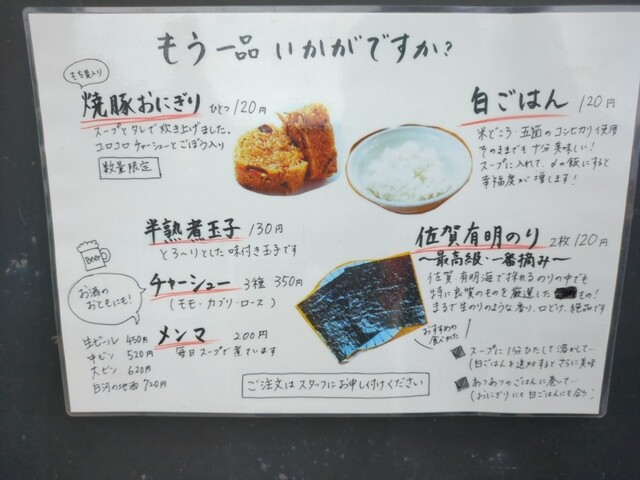 もう一品いかがですか?
もち米入り
焼豚おにぎり ひとつ 120円
スープとタレで炊き上げました。
コロコロチャーシューとごぼう入り
数量限定
白ごはん 120円
米どころ・五箇のコシヒカリ使用
そのままでも十分美味しい!
スープに入れて、〆の飯にすると
幸福度が増します!
半熟煮玉子 130円
とろ〜りとした味付き玉子です
Beer
お酒の
おともにも!
チャーシュー 3種 350円
(モモ・カブリ・ロース)
メンマ 200円
毎日スープで煮ています
生ビール 450円
中ビン 520円
大ビン 620円
白河の地酒 720円
佐賀有明のり 2枚120円
〜最高級・一番摘み〜
佐賀・有明海で採れるのりの中でも
特に良質のものを厳選した もの!
まるで生のりのような香り、口どけ、絶品です
おすすめの
食べ方
スープに1分ひたして溶かして…
(白ごはんを追加するとさらに美味
あつあつのごはんに巻いて…
(おにぎりにも白ごはんにも合う)
ご注文はスタッフにお申し付けください